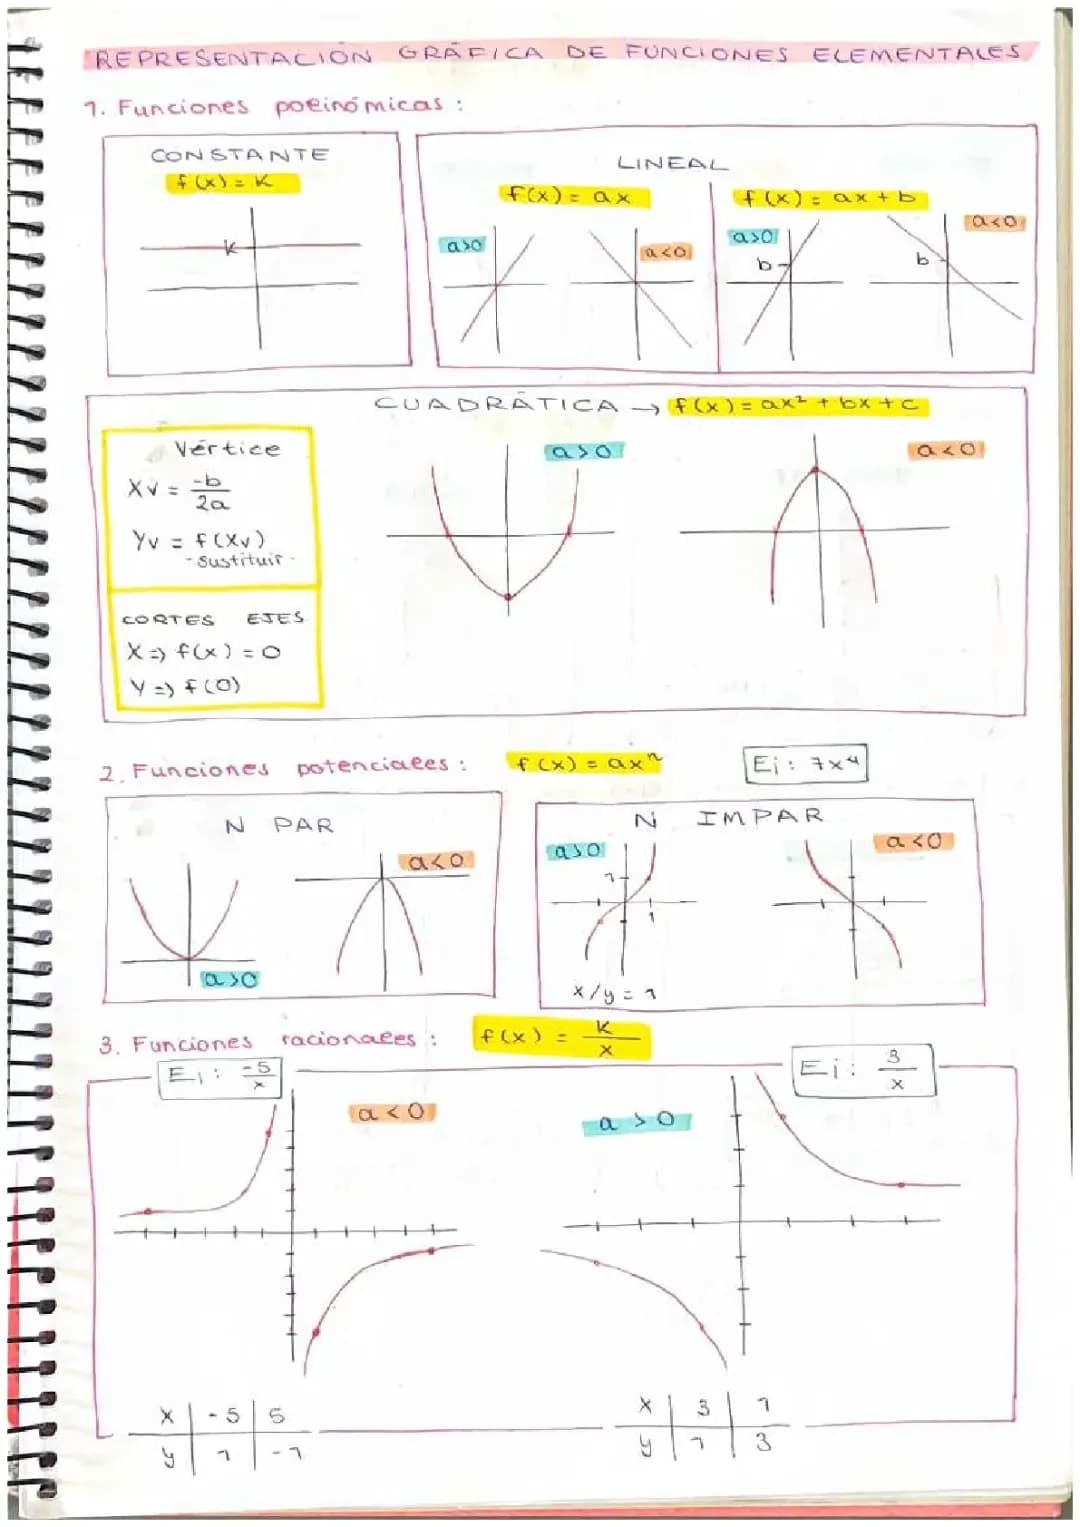 REPRESENTACIÓN GRÁFICA DE FUNCIONES ELEMENTALES
1. Funciones polinómicas :
CONSTANTE
f(x) = K
K
LINEAL
f(x) = ax
a>0
a<0
f(x) = ax + b
a>0
b
a<0
b
CUADRÁTICA → f(x) = ax² + bx + c
Vértice
Xv = -b/2a
Yv = f(Xv)
- sustituir -
CORTES EJES
X => f(x) = 0
Y => f(0)
a>0
a<0
2. Funciones potenciales : f(x) = axⁿ
Ej : 7x⁴
N PAR
a>0
a<0
N IMPAR
a>0
1
1
x/y = 1
a<0
3. Funciones racionales : f(x) = K/x
Ej : -5/x
a<0
a>0
Ej : 3/x
x | -5 | 5
y | 1 | -1
x | 3 | 1
y | 1 | 3